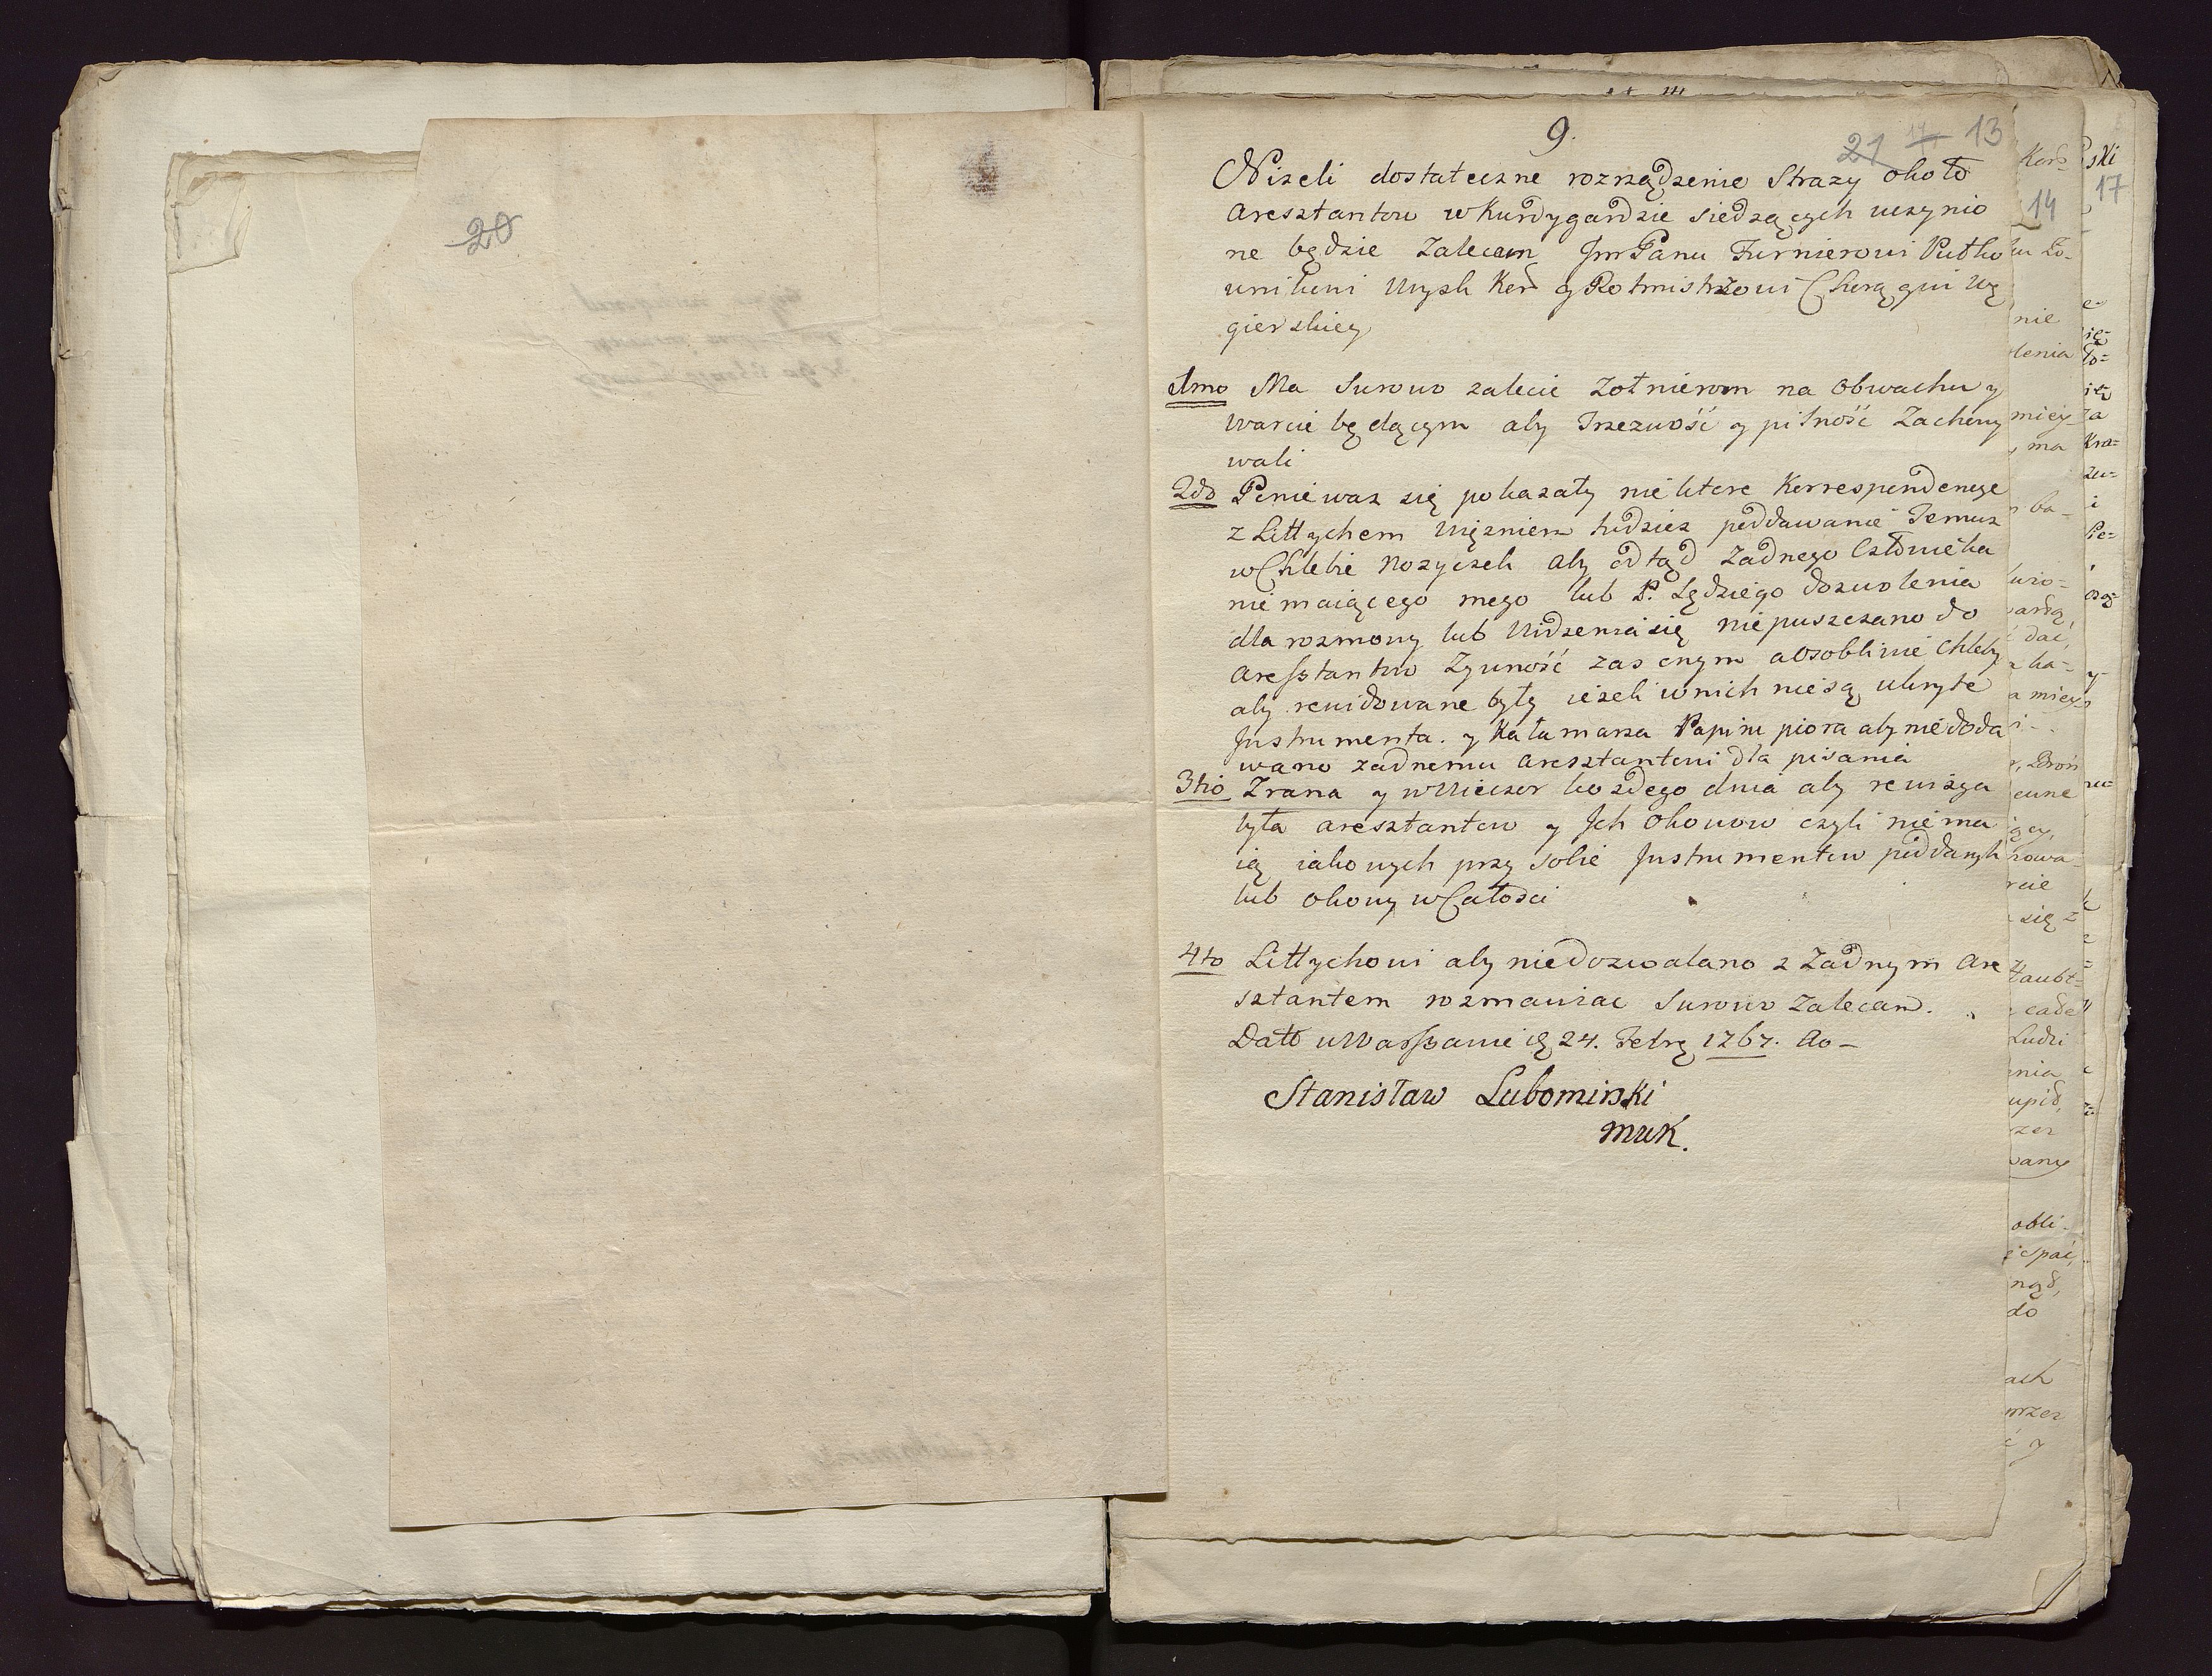 20
9.
21 14 13
Nizeli dostateczne rozrządzenie Strazy około
Aresztantow w Kurdygardzie siedzących uczynio
ne będzie Zalecam JmPanu Turnierowi Pułko
wnikowi Woysk Kor y Rotmistrzowi Chorągwi Wę
gierskiey
1mo Ma Surowo zalecić Zołnierom na Obwachu y
warcie będącym aby Trzezwość y pilność Zachowy
wali
2do Poniewaz się pokazały niektore Korrespondencye
z Littychem Więzniem tudziez poddawanie Temuz
w Chlebie Nozyczek aby odtąd Zadnego Człowieka
niemaiącego mego lub P. Sędziego dozwolenia
dla rozmowy lub Widzenia się niepuszczano do
Aresztantow Zywność zas onym absoblinie Chleby
aby rewidowane były iezeli w nich niesą ukryte
Instrumenta. y Kałamarza Papiru piora aby niedoda
wano zadnemu Aresztantowi dla pisania
3tio Zrana y w Wieczor kozdego dnia aby rewizya
była aresztantow y Ich Okowow czyli niema
ią iakowych przy sobie Instrumentow poddanych
lub okowy w Całosci
4to Littychowi aby niedozwalano z Zadnym Are
sztantem rozmawiac Surowo Zalecam.
Datt w Warszawie d 24. Febrę 1767. Ao –
Stanisław Lubomirski
MWK.
14
nie
ma
dać
się z
Ludzi
do
17
i